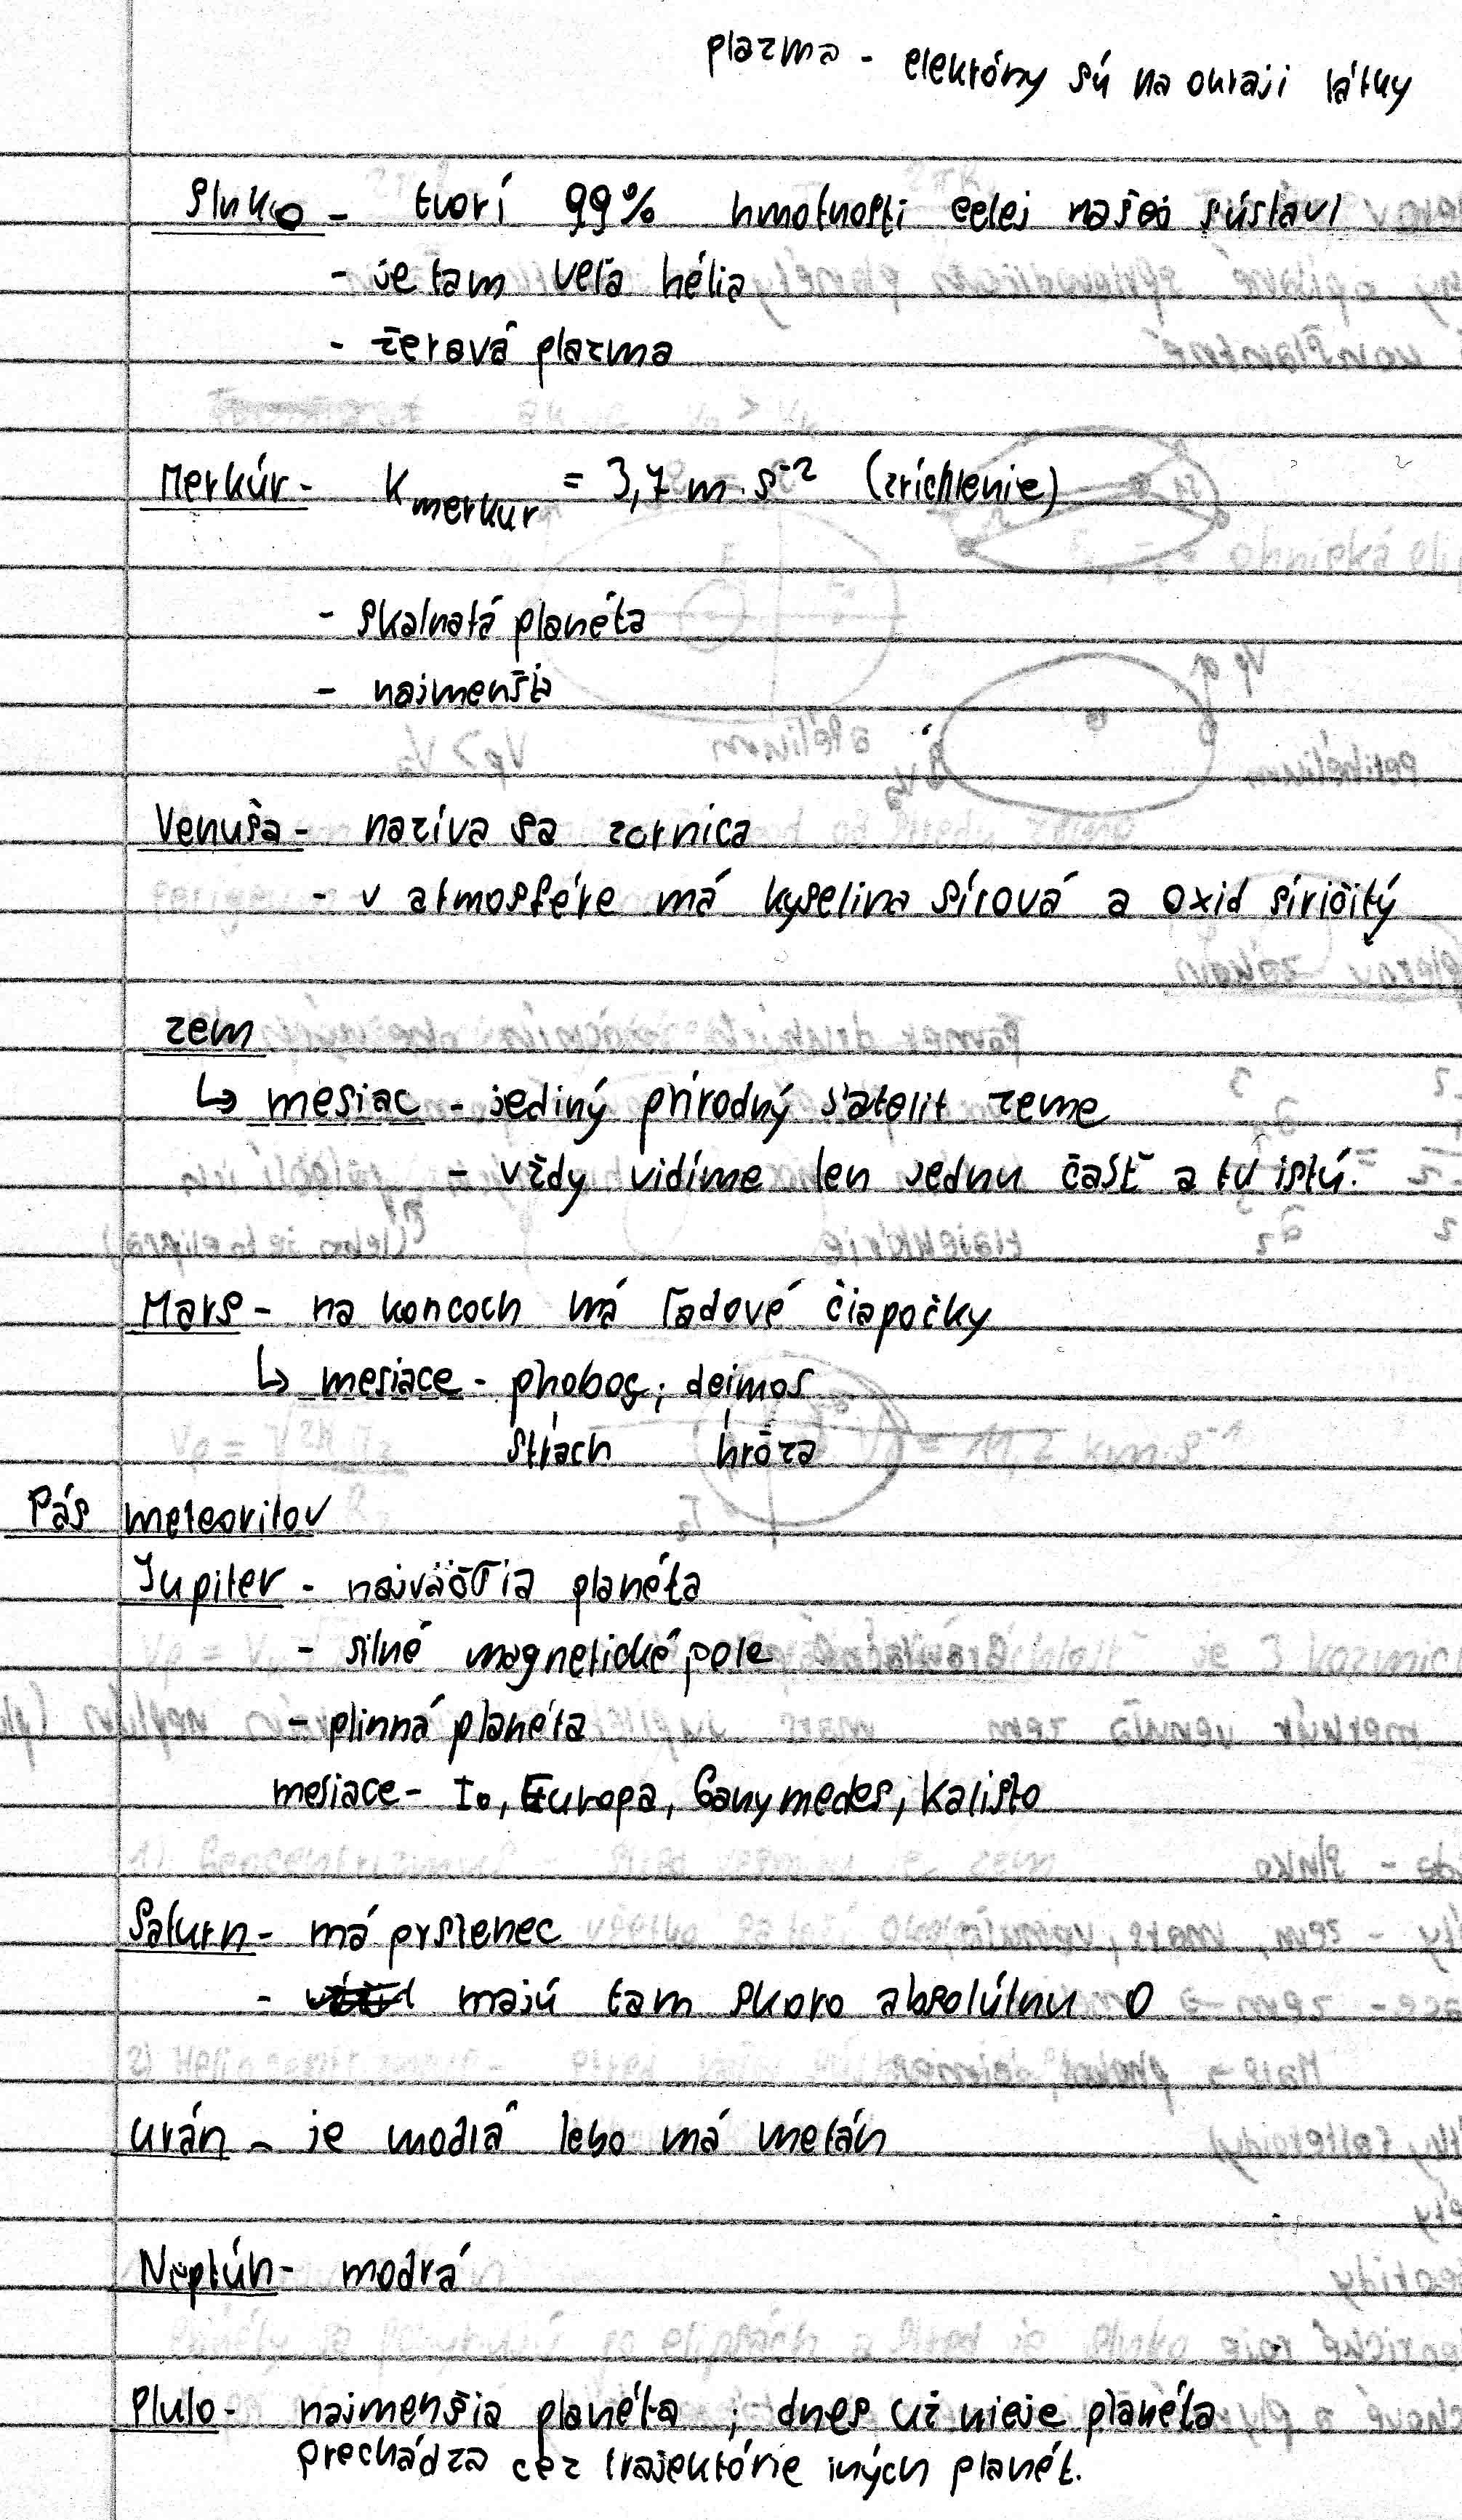 plazma - elektróny sú na okraji látky
Slnko - tvorí 99% hmotnosti celej našej sústavi
- je tam veľa hélia
- žeravá plazma
Merkúr - K merkur = 3,7 m.s⁻² (zrichlenie)
- skalnatá planéta
- najmenšia
Venuša - naziva sa zornica
- v atmosfére má kyselina sírová a oxid siričitý
zem
↳ mesiac - jediný prírodný satelit zeme
- vždy vidíme len jednu časť a tú istú.
Mars - na koncoch má ľadové čiapočky
↳ mesiace - phobos; deimos
strach hrôza
Pás meteoritov
Jupiter - najväčšia planéta
- silné magnetické pole
- plinná planéta
mesiace - Io, Europa, Ganymedes, Kalisto
Saturn - má prstenec
- majú tam skoro absolútnu 0
urán - je modrá lebo má metán
Neptún - modrá
Pluto - najmenšia planéta ; dnes už nieje planéta
prechádza cez trajektórie iných planét.